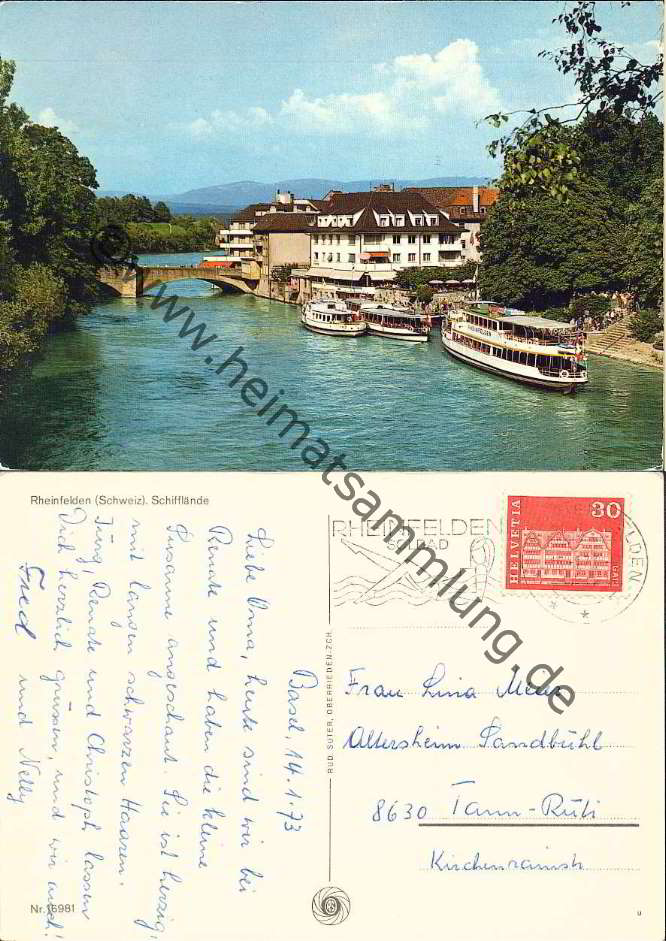 © www.heimatsammlung.de
Rheinfelden (Schweiz). Schifflände
Basel, 14.1.73
Liebe Oma, heute sind wir bei
Renate und haben die kleine
Susanne angeschaut. Sie ist herzig,
mit langen schwarzen Haaren.
Jürg, Renate und Christoph lassen
Dich herzlich grüssen, und wir auch!
Fred und Nelly
Nr. 16981
RUD. SUTER, OBERRIEDEN-ZCH.
RHEINFELDEN
SOLBAD
HELVETIA
30
GAIS
Frau Lina Meier
Altersheim Sandbühl
8630 Tann-Rüti
u